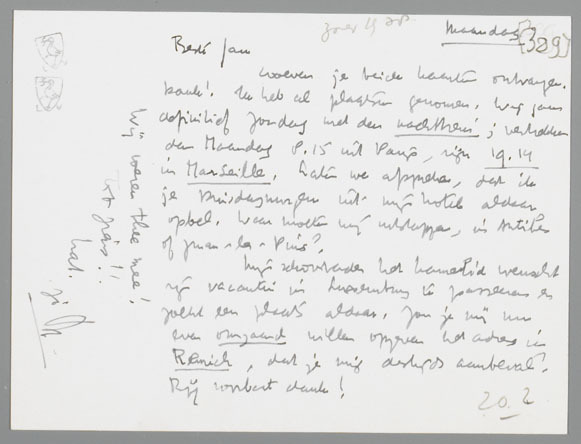 Maandag
[329]
Beste Jan
je beide kaarten ontvangen.
Dank! Ik heb al plaatsen genomen. Wij gaan
definitief Zondag met den nachttrein; vertrekken
den Maandag 8.15 uit Parijs, zijn 19.14
in Marseille. Laten we afspreken, dat ik
je Dinsdagmorgen uit mijn hotel aldaar
opbel. Waar moeten wij uitstappen, in Antibes
of Juan-les-Pins?
Mijn schoonvader wenscht
zijn vacantie in Luxemburg te passeeren en
zoekt een plaats aldaar. Zou je mij nu
even omgaand willen opgeven het adres in
Remich, dat je mij destijds aanbeval?
Bij voorbaat dank!
Wij nemen thee mee!
Tot ziens!!
hart.
je
20.2